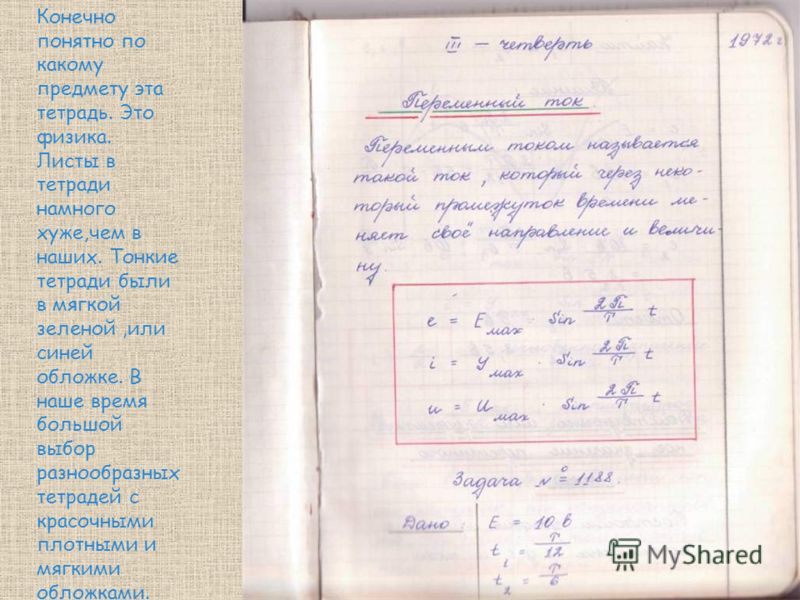 Конечно
понятно по
какому
предмету эта
тетрадь. Это
физика.
Листы в
тетради
намного
хуже,чем в
наших. Тонкие
тетради были
в мягкой
зеленой ,или
синей
обложке. В
наше время
большой
выбор
разнообразных
тетрадей с
красочными
плотными и
мягкими
обложками.
III – четверть
1972 г
Переменный ток.
Переменным током называется
такой ток, который через неко-
торый промежуток времени ме-
няет своё направление и величи-
ну.
e = E мах · Sin 2П/T t
i = Y мах · Sin 2П/T t
u = U мах · Sin 2П/T t
Задача № 1188.
Дано: E = 10 в
t₁ = T/12
t₂ = T/6
MyShared